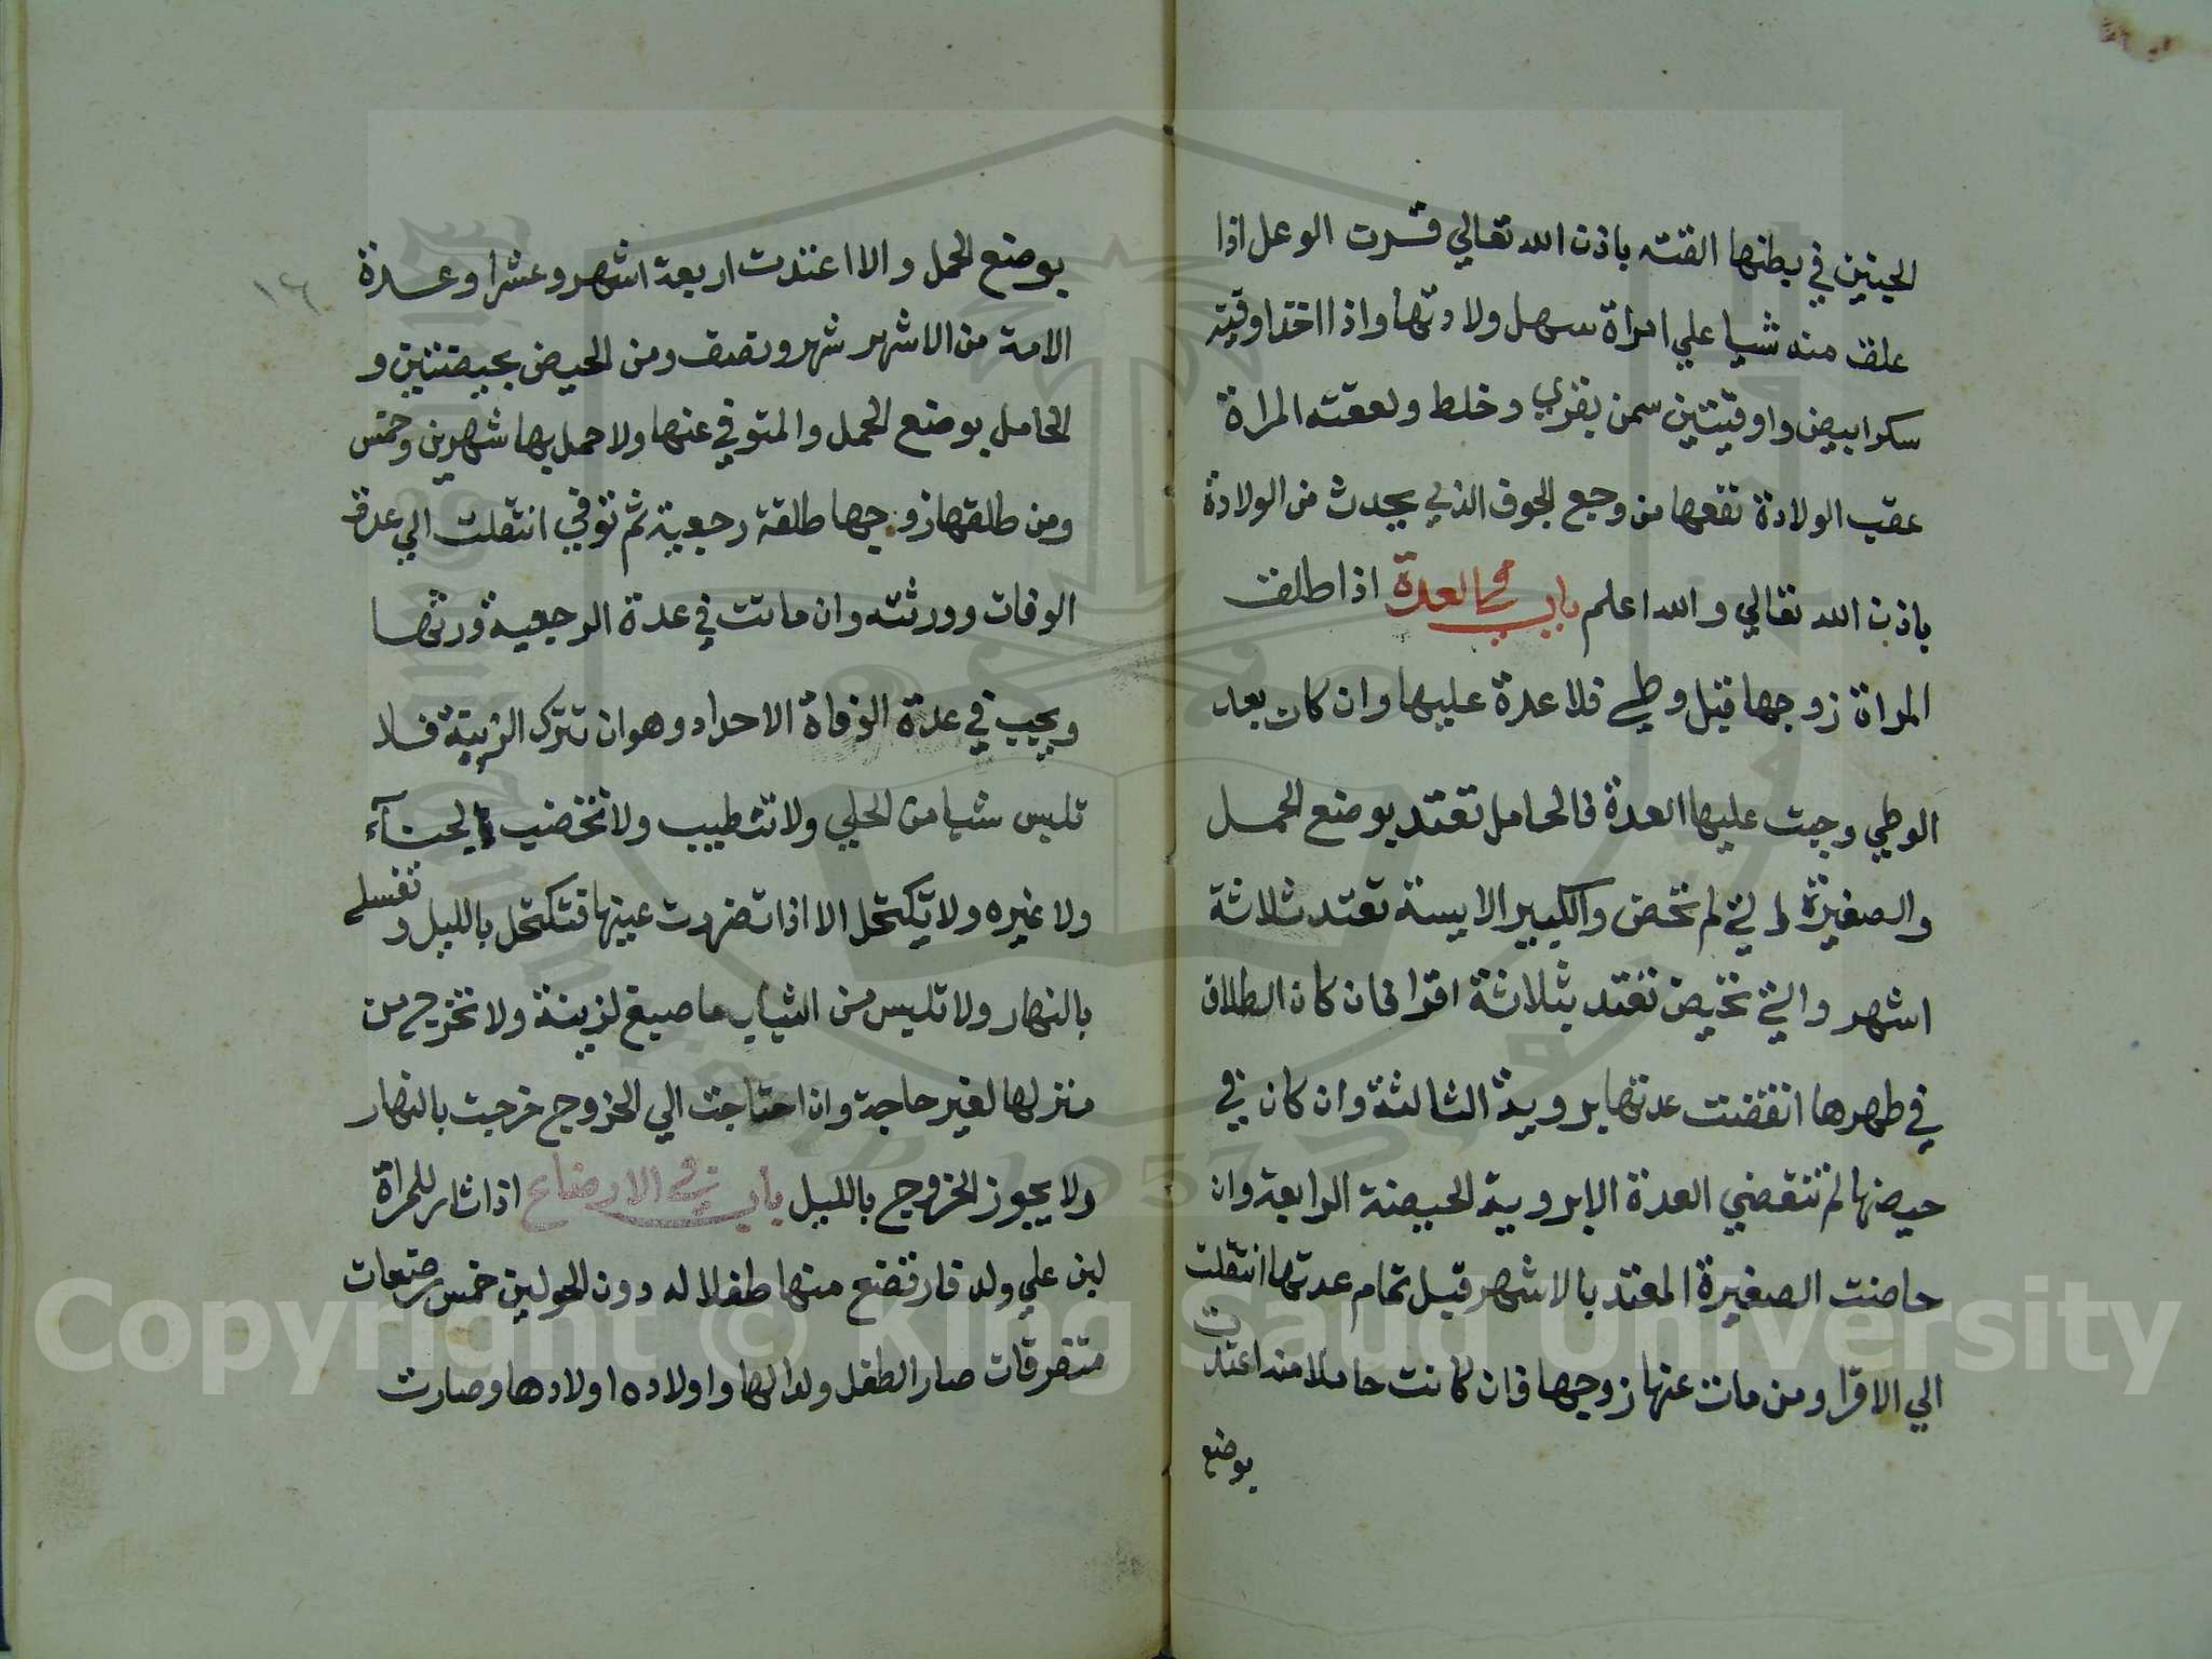 الجنين في بطنها القته باذن الله تعالي قرت الوعل اذا
علق منه شيا علي امراة سهل ولادتها واذا اخذ اوقيه
سكر ابيض واوقيتين سمن بقري وخلط ولعقته المراة
عقب الولادة نفعها من وجع الجوف الذي يحدث من الولادة
باذن الله تعالي والله اعلم باب في العدة اذا طلق
المراة زوجها قبل وطي فلا عدة عليها وان كان بعد
الوطي وجبت عليها العدة فالحامل تعتد بوضع الحمل
والصغيرة التي لم تحض والكبير الايسة تعتد ثلاثة
اشهر والتي تحيض تعتد بثلاثة اقرا فان كان الطلاق
في طهرها انقضت عدتها بروية الثالثة وان كان في
حيضها لم تنقضي العدة الا بروية الحيضة الرابعة وان
حاضت الصغيرة المعتد بالاشهر قبل تمام عدتها انتقلت
الي الاقرا ومن مات عنها زوجها فان كانت حاملا منه اعتدت
بوضع
١٦
بوضع الحمل والا اعتدت اربعة اشهر وعشرا وعدة
الامة من الاشهر شهر ونصف ومن الحيض بحيضتين و
الحامل بوضع الحمل والمتوفي عنها ولا حمل بها شهرين وخمس
ومن طلقها زوجها طلقة رجعية ثم توفي انتقلت الي عدة
الوفات وورثته وان ماتت في عدة الرجعية ورثها
ويجب في عدة الوفاة الاحداد وهو ان تترك الزينة فلا
تلبس شيا من الحلي ولا تتطيب ولا تخضب بالحنآء
ولا غيره ولا تكتحل الا اذا تضررت عينها فتكتحل بالليل وتغسله
بالنهار ولا تلبس من الثياب ما صبغ لزينة ولا تخرج من
منزلها لغير حاجة وان احتاجت الي الخروج خرجت بالنهار
ولا يجوز الخروج بالليل باب في الارضاع اذا ثار للمراة
لبن علي ولد فارتضع منها طفلا له دون الحولين خمس رضعات
متفرقات صار الطفل ولدا لها واولاده اولادها وصارت
Copyright © King Saud University
1957